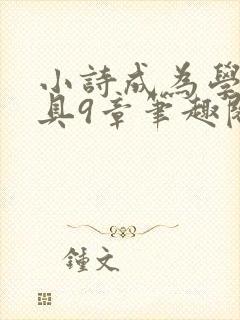 小詩成為學
具9章筆趣閣
鍾文